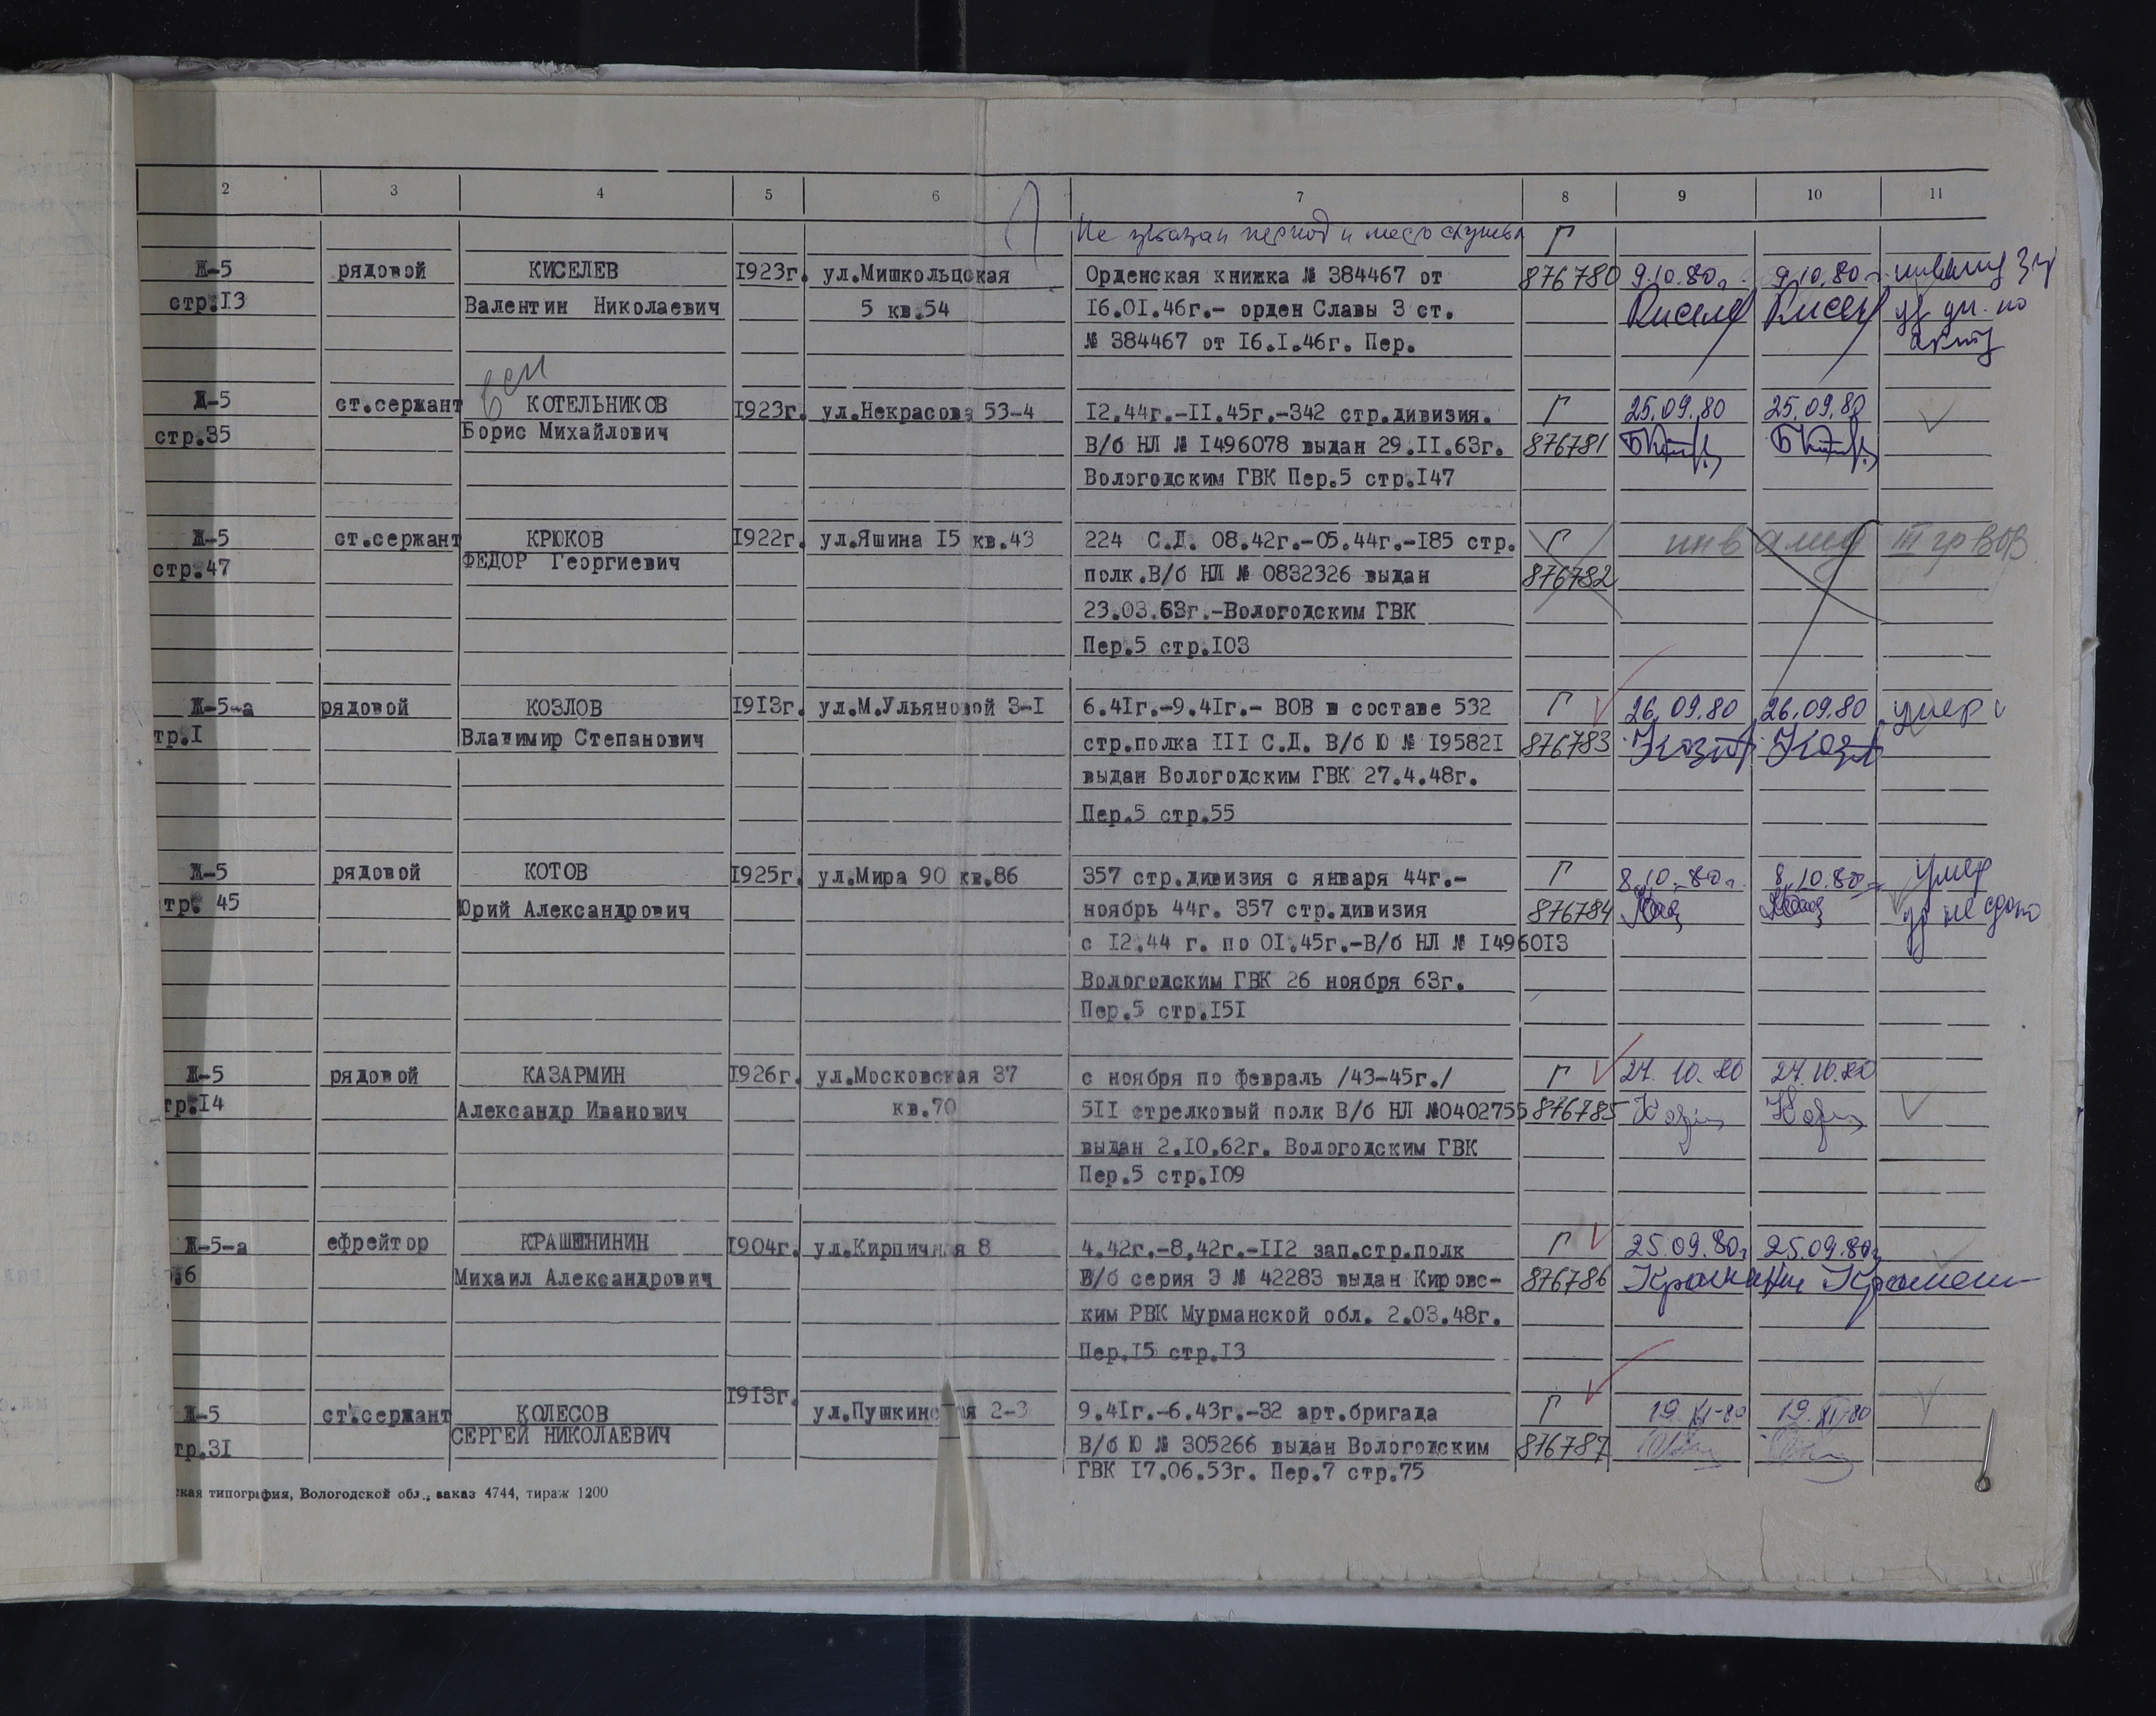 2 3 4 5 6 7 8 9 10 11
Не указан период и место службы Г
Ж-5 рядовой КИСЕЛЕВ 1923г. ул.Мишкольцская Орденская книжка № 384467 от 876780 9.10.80г. 9.10.80г. инвалид 3 гр
стр.13 Валентин Николаевич 5 кв.54 16.01.46г.- орден Славы 3 ст. Кисел Кисел по
№ 384467 от 16.1.46г. Пер. акту
Д-5 ст.сержант КОТЕЛЬНИКОВ 1923г. ул.Некрасова 53-4 12.44г.-11.45г.-342 стр.дивизия. Г 25.09.80 25.09.80
стр.35 Борис Михайлович В/б НЛ № 1496078 выдан 29.11.63г. 876781
Вологодским ГВК Пер.5 стр.147
Ж-5 ст.сержант КРЮКОВ 1922г. ул.Яшина 15 кв.43 224 С.Д. 08.42г.-05.44г.-185 стр. Г инвалид III гр ВОВ
стр.47 ФЕДОР Георгиевич полк.В/б НЛ № 0832326 выдан 876782
23.03.63г.-Вологодским ГВК
Пер.5 стр.103
Ж-5-а рядовой КОЗЛОВ 1913г. ул.М.Ульяновой 3-1 6.41г.-9.41г.- ВОВ в составе 532 Г 26.09.80 26.09.80 умер
тр.1 Владимир Степанович стр.полка 111 С.Д. В/б Ю № 195821 876783 Козл Козл
выдан Вологодским ГВК 27.4.48г.
Пер.5 стр.55
Ж-5 рядовой КОТОВ 1925г. ул.Мира 90 кв.86 357 стр.дивизия с января 44г.- Г 8.10.80г. 8.10.80г. умер
тр. 45 Юрий Александрович ноябрь 44г. 357 стр.дивизия 876784 не сдано
с 12.44 г. по 01.45г.-В/б НЛ № 1496013
Вологодским ГВК 26 ноября 63г.
Пер.5 стр.151
Ж-5 рядовой КАЗАРМИН 1926г. ул.Московская 37 с ноября по февраль /43-45г./ Г 27.10.80 27.10.80
тр.14 Александр Иванович кв.70 511 стрелковый полк В/б НЛ №0402755 876785
выдан 2.10.62г. Вологодским ГВК
Пер.5 стр.109
Ж-5-а ефрейтор КРАШЕНИНИН 1904г. ул.Кирпичная 8 4.42г.-8.42г.-112 зап.стр.полк Г 25.09.80г 25.09.80г
.6 Михаил Александрович В/б серия Э № 42283 выдан Кировс- 876786
ким РВК Мурманской обл. 2.03.48г.
Пер.15 стр.13
1913г.
Ж-5 ст.сержант КОЛЕСОВ ул.Пушкинская 2-3 9.41г.-6.43г.-32 арт.бригада Г 19.XI-80 19.XI-80
тр.31 СЕРГЕЙ НИКОЛАЕВИЧ В/б Ю № 305266 выдан Вологодским 876787
ГВК 17.06.53г. Пер.7 стр.75
ская типография, Вологодской обл., заказ 4744, тираж 1200